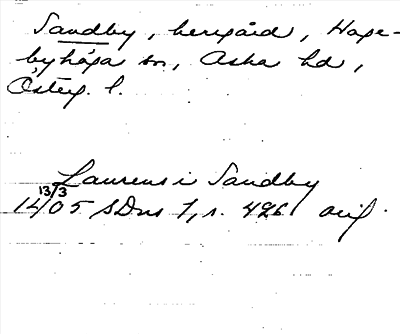 Sandby, herrgård, Hage-
byhöga sn, Aska hd,
Österg. l.
Laurens i Sandby
13/3
1405 SDns 1, s. 426 orig.